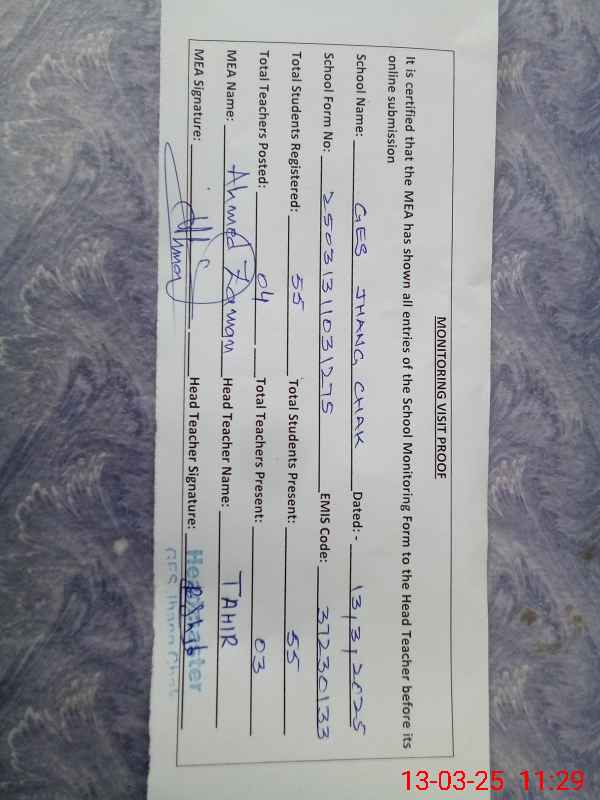 MONITORING VISIT PROOF
It is certified that the MEA has shown all entries of the School Monitoring Form to the Head Teacher before its
online submission
School Name: GES JHANG CHAK Dated: - 13/3/2025
School Form No: 25031311031275 EMIS Code: 37230133
Total Students Registered: 55 Total Students Present: 55
Total Teachers Posted: 04 Total Teachers Present: 03
MEA Name: Ahmed Zaman Head Teacher Name: TAHIR
MEA Signature: Head Teacher Signature: Head Master
GES Jhang Chak
13-03-25 11:29